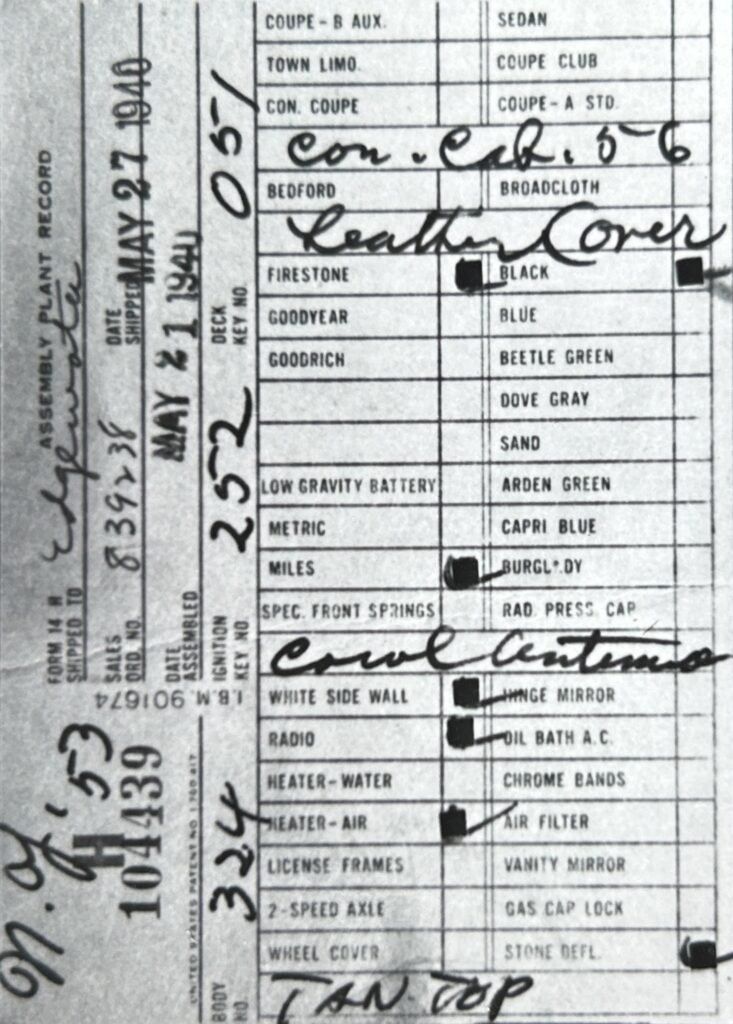 COUPE-B AUX. SEDAN
TOWN LIMO. COUPE CLUB
CON. COUPE COUPE-A STD.
Con. Cab. 56
BEDFORD BROADCLOTH
Leather Cover
FIRESTONE BLACK
GOODYEAR BLUE
GOODRICH BEETLE GREEN
DOVE GRAY
SAND
LOW GRAVITY BATTERY ARDEN GREEN
METRIC CAPRI BLUE
MILES
SPEC. FRONT SPRINGS RAD. PRESS. CAP
Cowl Antenna
WHITE SIDE WALL HINGE MIRROR
RADIO OIL BATH A.C.
HEATER-WATER CHROME BANDS
HEATER-AIR AIR FILTER
LICENSE FRAMES VANITY MIRROR
2-SPEED AXLE GAS CAP LOCK
WHEEL COVER STONE DEFL.
TAN TOP
ASSEMBLY PLANT RECORD
FORM 14 H
SHIPPED TO Edgewater
SALES ORD. NO. 839238 DATE SHIPPED MAY 27 1940
DATE ASSEMBLED MAY 21 1940
BODY NO. 324 IGNITION KEY NO. 252 DECK KEY NO. 051
I.B.M. 901674
N.Y. '53
H
104439
UNITED STATES PATENT NO.